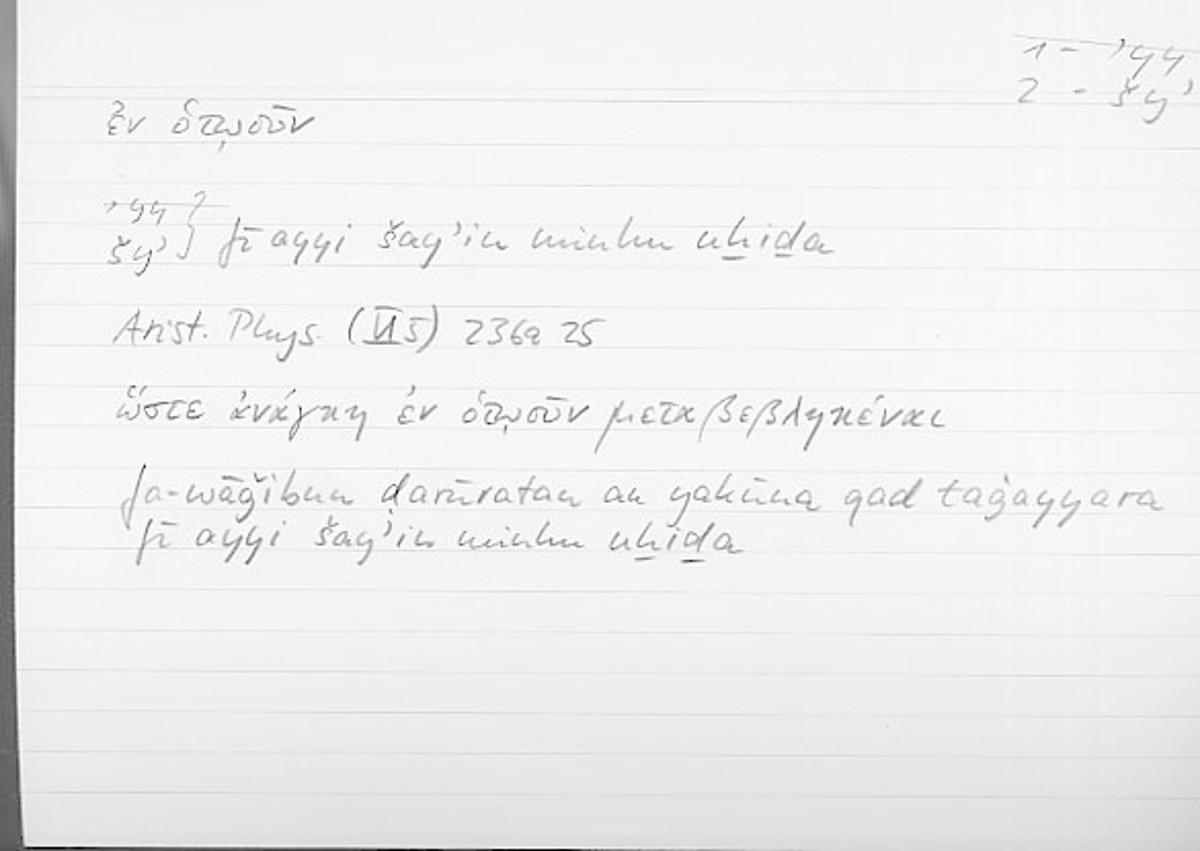 1 - ʾyy
2 - šyʾ
ἐν ὁτῳοῦν
ʾyy
šyʾ } fī ayyi šayʾin minhu uḫiḏa
Arist. Phys. (VI 5) 236a 25
ὥστε ἀνάγκη ἐν ὁτῳοῦν μεταβεβληκέναι
fa-wāǧibun ḍarūratan an yakūna qad taġayyara
fī ayyi šayʾin minhu uḫiḏa